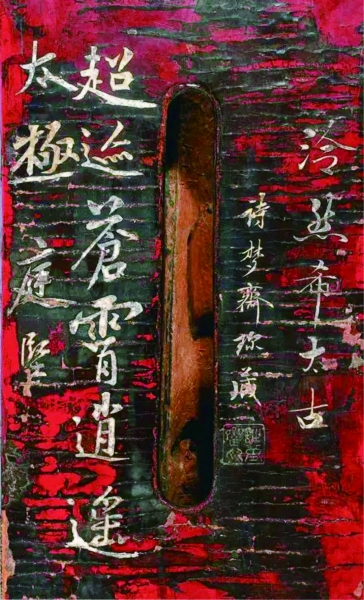 泠然希太古
詩梦齋珎藏
超迹蒼霄逍遥
太極庭堅